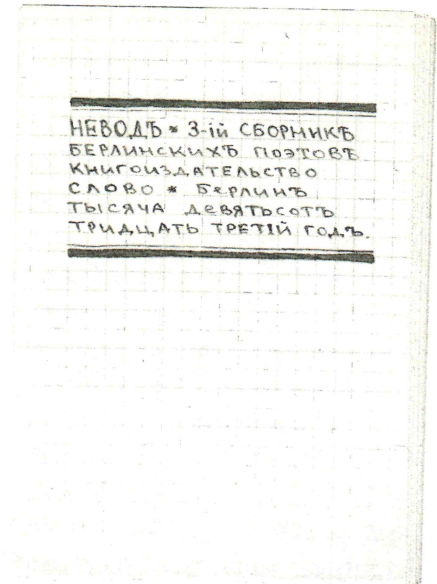 НЕВОДЪ * 3-ій СБОРНИКЪ
БЕРЛИНСКИХЪ ПОЭТОВЪ
КНИГОИЗДАТЕЛЬСТВО
СЛОВО * БЕРЛИНЪ
ТЫСЯЧА ДЕВЯТЬСОТЪ
ТРИДЦАТЬ ТРЕТІЙ ГОДЪ.